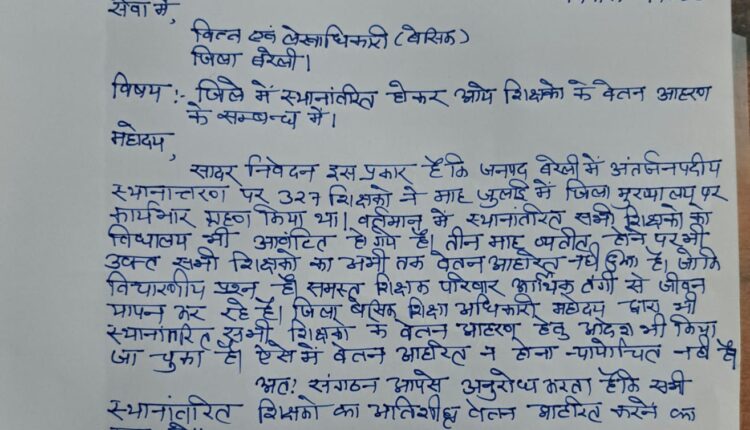 सेवा में,
वित्त एवं लेखाधिकारी (बेसिक)
जिला बरेली।
विषय :- जिले में स्थानांतरित होकर आये शिक्षको के वेतन आहरण
के सम्बन्ध में।
महोदय,
सादर निवेदन इस प्रकार है कि जनपद बरेली में अंतर्जनपदीय
स्थानान्तरण पर 327 शिक्षको ने माह जुलाई में जिला मुख्यालय पर
कार्यभार ग्रहण किया था। वर्तमान में स्थानांतरित सभी शिक्षको को
विद्यालय भी आवंटित हो गये है। तीन माह व्यतीत होने पर भी
उक्त सभी शिक्षको का अभी तक वेतन आहरित नही हुआ है। जोकि
विचारणीय प्रश्न है। समस्त शिक्षक परिवार आर्थिक तंगी से जीवन
यापन कर रहे है। जिला बेसिक शिक्षा अधिकारी महोदय द्वारा भी
स्थानांतरित सभी शिक्षक के वेतन आहरण हेतु आदेश भी किया
जा चुका है। ऐसे में वेतन आहरित न होना न्यायोचित नही है।
अत: संगठन आपसे अनुरोध करता है कि सभी
स्थानांतरित शिक्षको का अतिशीघ्र वेतन आहरित करने का